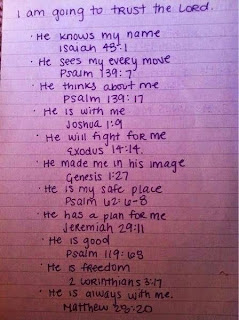 I am going to trust the Lord.
· He knows my name
Isaiah 43:1
· He sees my every move
Psalm 139:7
· He thinks about me
Psalm 139:17
· He is with me
Joshua 1:9
· He will fight for me
Exodus 14:14.
· He made me in his image
Genesis 1:27
· He is my safe place
Psalm 62:6-8
· He has a plan for me
Jeremiah 29:11
· He is good
Psalm 119:68
· He is freedom
2 Corinthians 3:17
· He is always with me.
Matthew 28:20